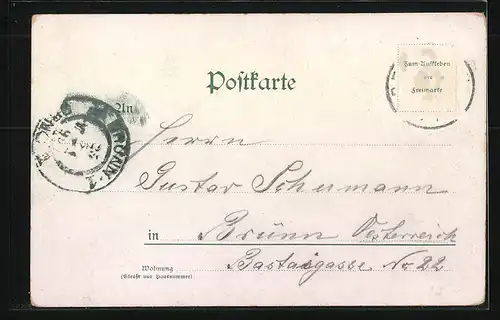 Postkarte
Zum Aufkleben
der
Freimarke
An
BRÜNN 1
Herrn
Gustav Schumann
in Brünn Oesterreich
Bastaigasse No 22
Wohnung
(Straße und Hausnummer)